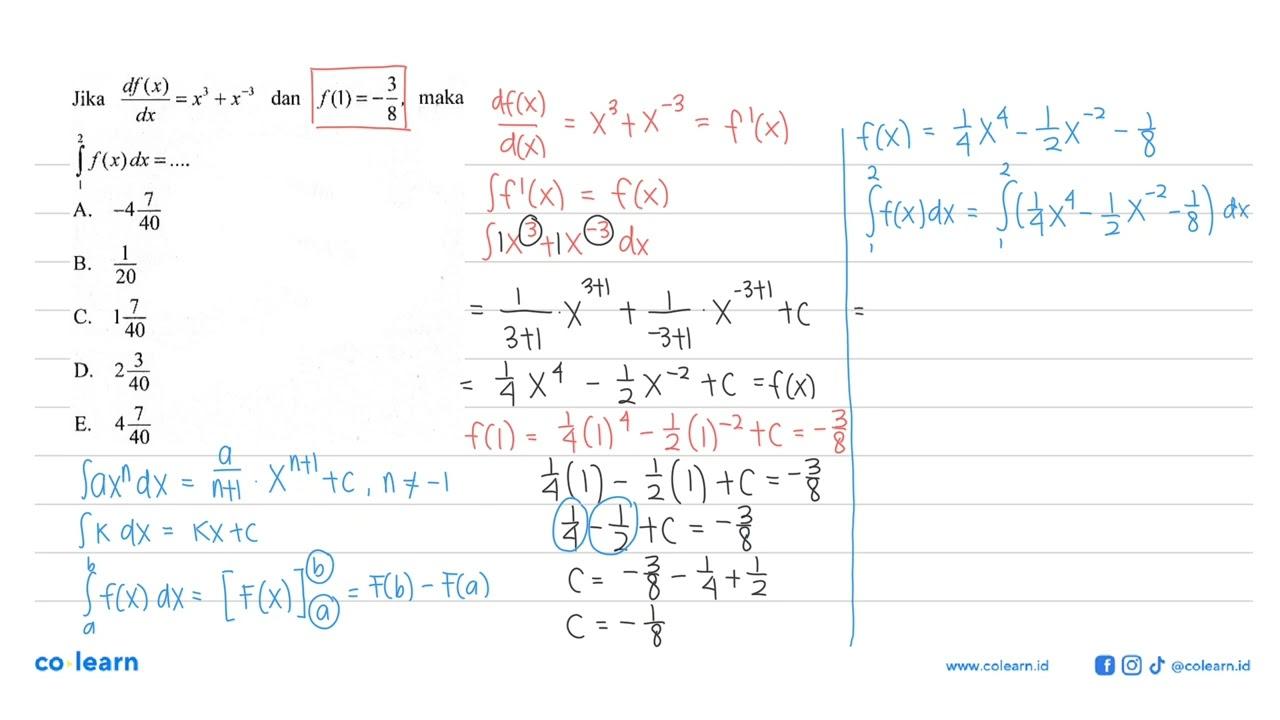 Jika df(x)/dx = x³ + x⁻³ dan f(1) = -3/8, maka
∫₁² f(x) dx = ....
A. -4 7/40
B. 1/20
C. 1 7/40
D. 2 3/40
E. 4 7/40
∫axⁿ dx = a/n+1 · xⁿ⁺¹ + c, n ≠ -1
∫K dx = Kx + c
∫ₐᵇ f(x) dx = [F(x)]ₐᵇ = F(b) - F(a)
df(x)/d(x) = x³ + x⁻³ = f'(x)
∫f'(x) = f(x)
∫1x³ + 1x⁻³ dx
= 1/3+1 · x³⁺¹ + 1/-3+1 · x⁻³⁺¹ + c
= 1/4 x⁴ - 1/2 x⁻² + c = f(x)
f(1) = 1/4 (1)⁴ - 1/2 (1)⁻² + c = -3/8
1/4 (1) - 1/2 (1) + c = -3/8
1/4 - 1/2 + c = -3/8
c = -3/8 - 1/4 + 1/2
c = -1/8
f(x) = 1/4 x⁴ - 1/2 x⁻² - 1/8
∫₁² f(x) dx = ∫₁² (1/4 x⁴ - 1/2 x⁻² - 1/8) dx
=
co learn
www.colearn.id
@colearn.id